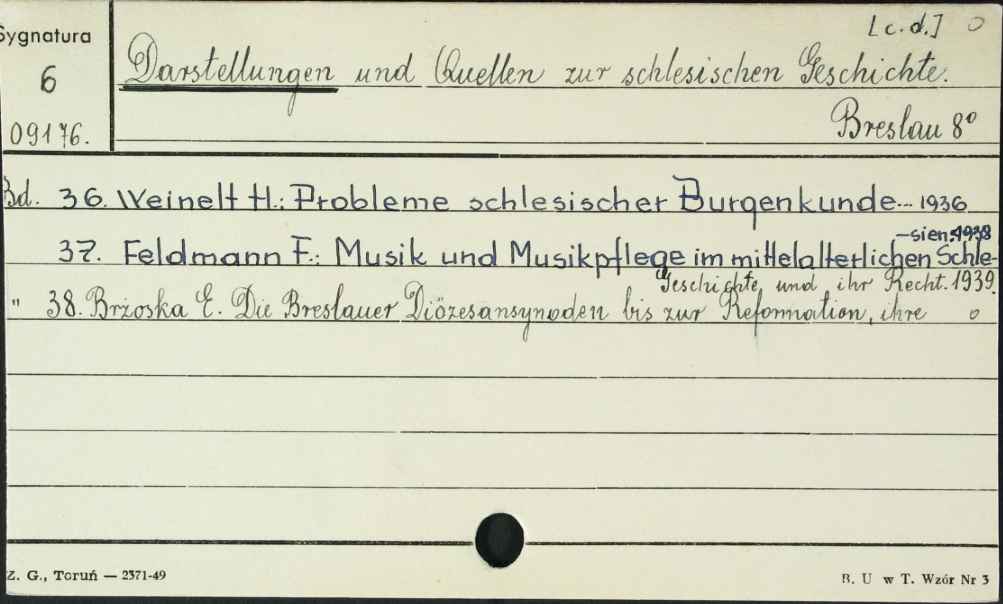 [c.d.] o
Sygnatura
6
09176.
Darstellungen und Quellen zur schlesischen Geschichte.
Breslau 8°
Bd. 36. Weinelt H.: Probleme schlesischer Burgenkunde... 1936
-sien. 1938
37. Feldmann F.: Musik und Musikpflege im mittelalterlichen Schle-
Geschichte, und ihr Recht. 1939.
" 38. Brzoska E. Die Breslauer Diözesansynoden bis zur Reformation, ihre o
Z. G., Toruń — 2371-49
B. U w T. Wzór Nr 3